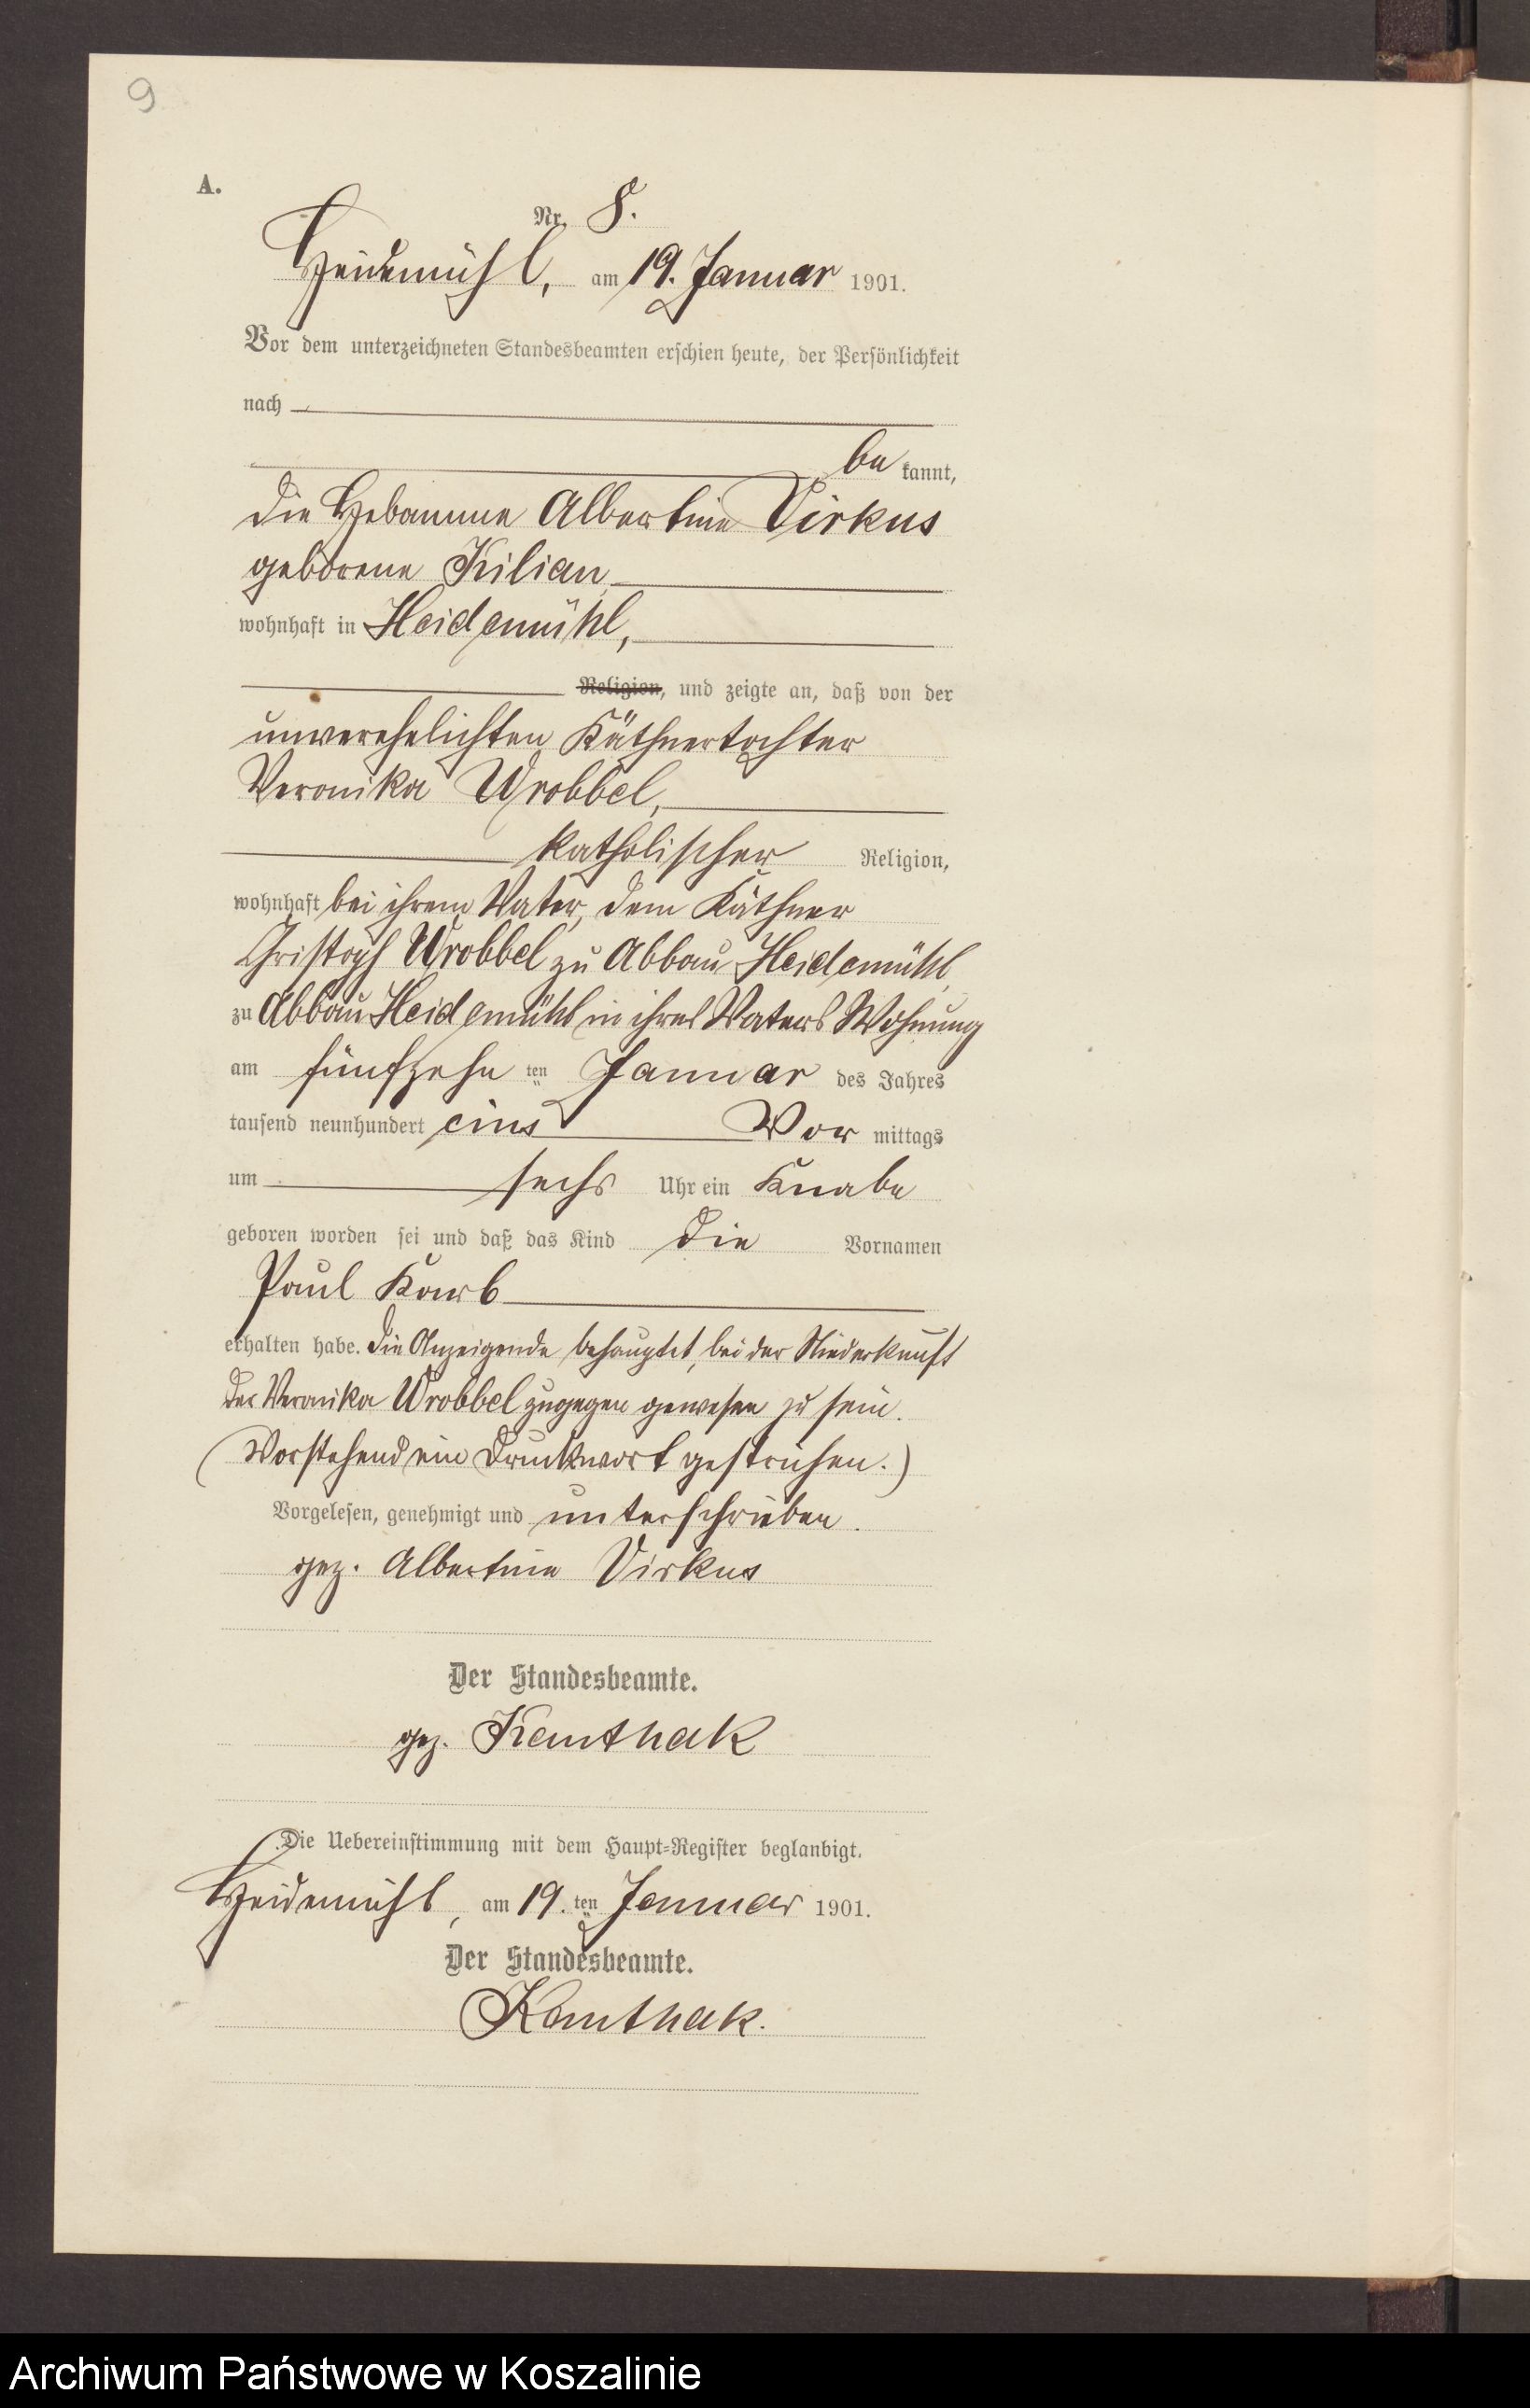 9
A.
Nr. 8.
Heidemühl, am 19. Januar 1901.
Vor dem unterzeichneten Standesbeamten erschien heute, der Persönlichkeit
nach
be kannt,
die Hebamme Albertine Virkus
geborene Kilian
wohnhaft in Heidemühl,
Religion, und zeigte an, daß von der
unverehelichten Käthnertochter
Veronika Wrobbel,
katholischer Religion,
wohnhaft bei ihrem Vater, dem Käthner
Christoph Wrobbel zu Abbau Heidemühl,
zu Abbau Heidemühl in ihres Vaters Wohnung
am fünfzehn ten Januar des Jahres
tausend neunhundert eins Vor mittags
um sechs Uhr ein Knabe
geboren worden sei und daß das Kind die Vornamen
Paul Karb
erhalten habe. Die Anzeigende behauptet, bei der Niederkunft
der Veronika Wrobbel zugegen gewesen zu sein.
(Vorstehend ein Druckwort gestrichen.)
Vorgelesen, genehmigt und unterschrieben.
gez. Albertine Virkus
Der Standesbeamte.
gez. Kamthak
Die Uebereinstimmung mit dem Haupt-Register beglaubigt.
Heidemühl, am 19. ten Januar 1901.
Der Standesbeamte.
Kamthak.
Archiwum Państwowe w Koszalinie